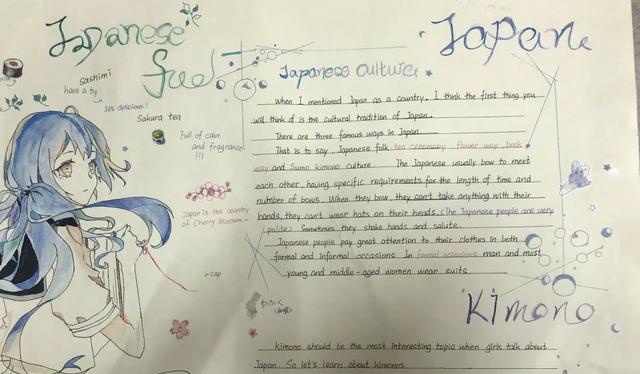 Japanese
Japan
sashimi
have a try
It's delicious!
Sakura tea
Full of color
and fragrance
!!!
Japan is the country
of Cherry Blossom~
cap
Japanese culture
When I mentioned Japan as a country, I think the first thing you
will think of is the cultural tradition of Japan.
There are three famous ways in Japan.
That is to say, Japanese folk tea ceremony flower way, book
way and Sumo kimono culture. The Japanese usually bow to meet
each other, having specific requirements for the length of time and
number of bows. When they bow, they can't take anything with their
hands, they can't wear hats on their heads. (The Japanese people are very
polite) Sometimes they shake hands and salute.
Japanese people pay great attention to their clothes in both
formal and informal occasions. In formal occasions man and most
young and middle-aged women wear suits
Kimono
kimono should be the most interesting topic when girls talk about
Japan. So let's learn about kimonos.